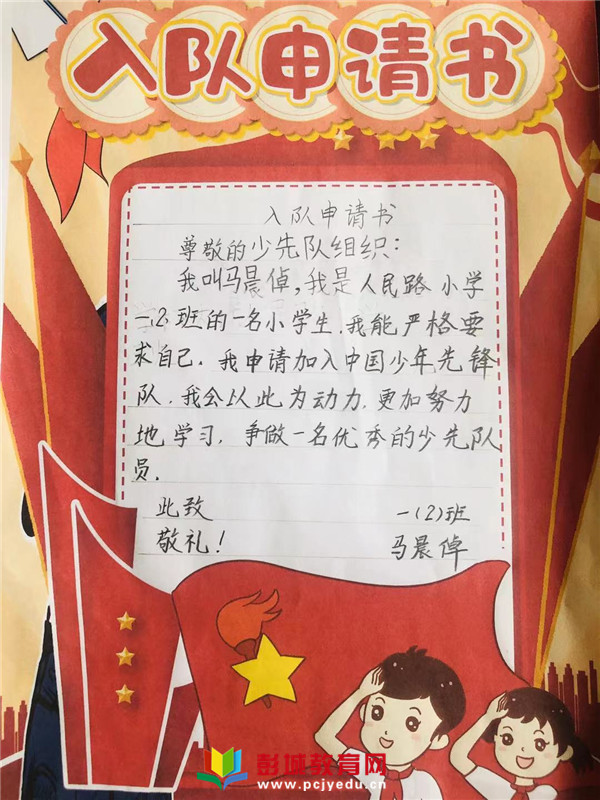 入队申请书
入队申请书
尊敬的少先队组织:
我叫马晨倬,我是人民路小学
一.2.班的一名小学生.我能严格要
求自己.我申请加入中国少年先锋
队.我会以此为动力.更加努力
地学习.争做一名优秀的少先队
员.
此致
一(2)班
敬礼!
马晨倬
彭城教育网
www.pcjyedu.cn